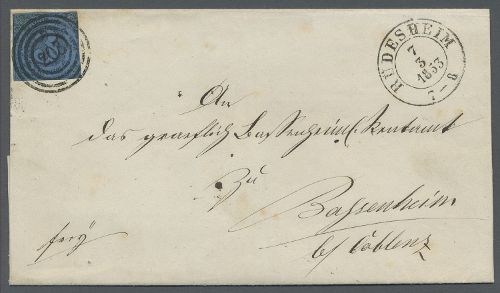 201
RUDESHEIM
7
3
1853
7-8
An
das graeflich Bassenheim. Rentamt
zu
Bassenheim
b/ Coblenz